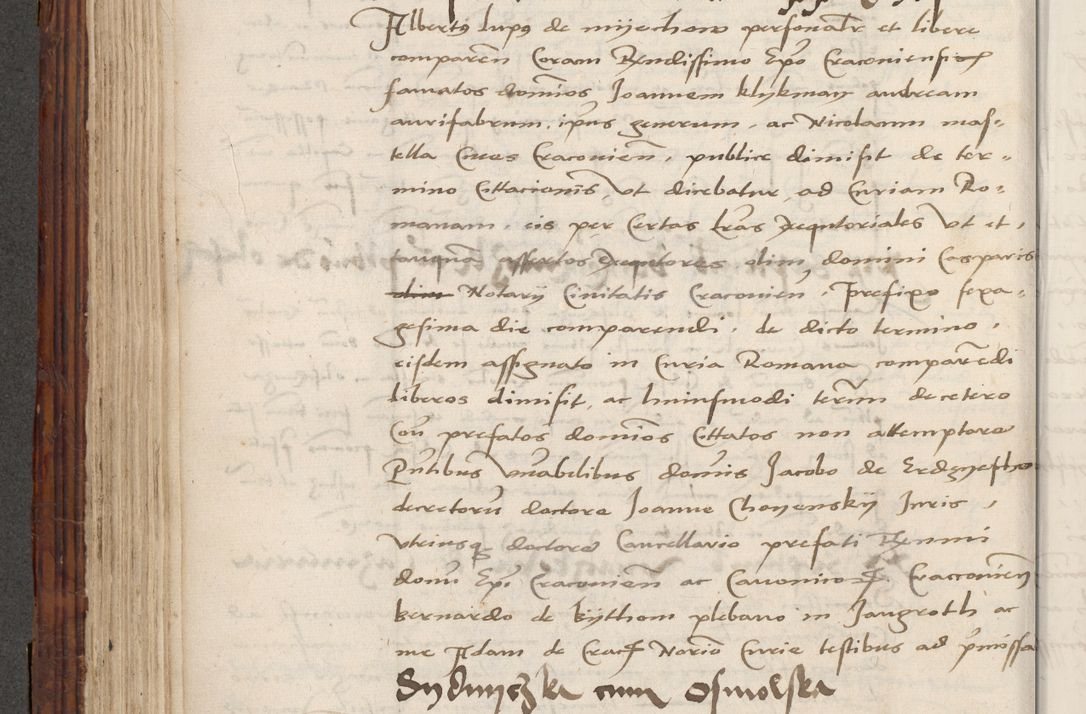 Albertus lupus de myechow personalr et libere
comparen Coram Rendissimo Epo Cracouiensi
famatos domios Joannem klykman andream
aurifabrum, ipius generum, ac Nicolaum mas-
tella Ciues Cracouien, publice dimisit de ter-
mino Cittacionis vt dicebatur, ad Curiam Ro-
manam, eis per Certas lras Exequtoriales vt et,
tanquam assertos Exequtores olim, domini Casparis
olim Notarij Ciuitatis Cracouien, Prefixo sexa-
gesima die comparendi, de dicto termino,
eisdem assignato in Curia Romana comparedi
liberos dimisit, ac huiusmodi termi decetero
Con prefatos domios Cittatos non attemptare
Pntibus vnabilibus domis Jacobo de Erdzyessow
decretoru doctore Joanne Choyenskij Juris,
vtriusq doctore Cancellario prefati Renmi
domi Epi Cracouien ac Canonico Craccouien
bernardo de kythom plebano in Jangroth ac
me Adam de Notario Curie testibus ad pmissa
cum Osmolska